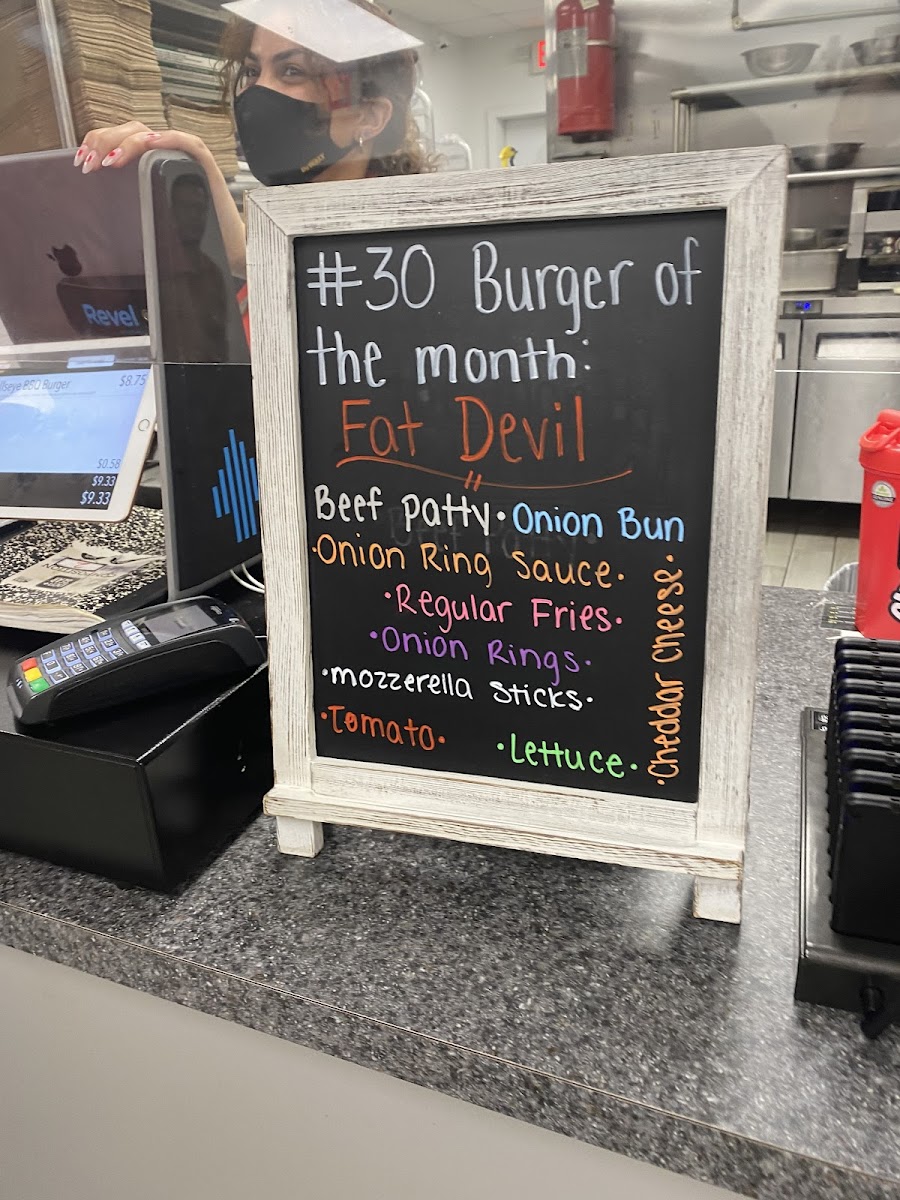 #30 Burger of
the month:
Fat Devil
Beef Patty • Onion Bun
•Onion Ring Sauce•
•Regular Fries•
•Onion Rings•
•mozzerella Sticks•
•Tomato•
•Lettuce•
•Cheddar Cheese•
Revel
BBQ Burger
$8.75
$0.58
$9.33
$9.33